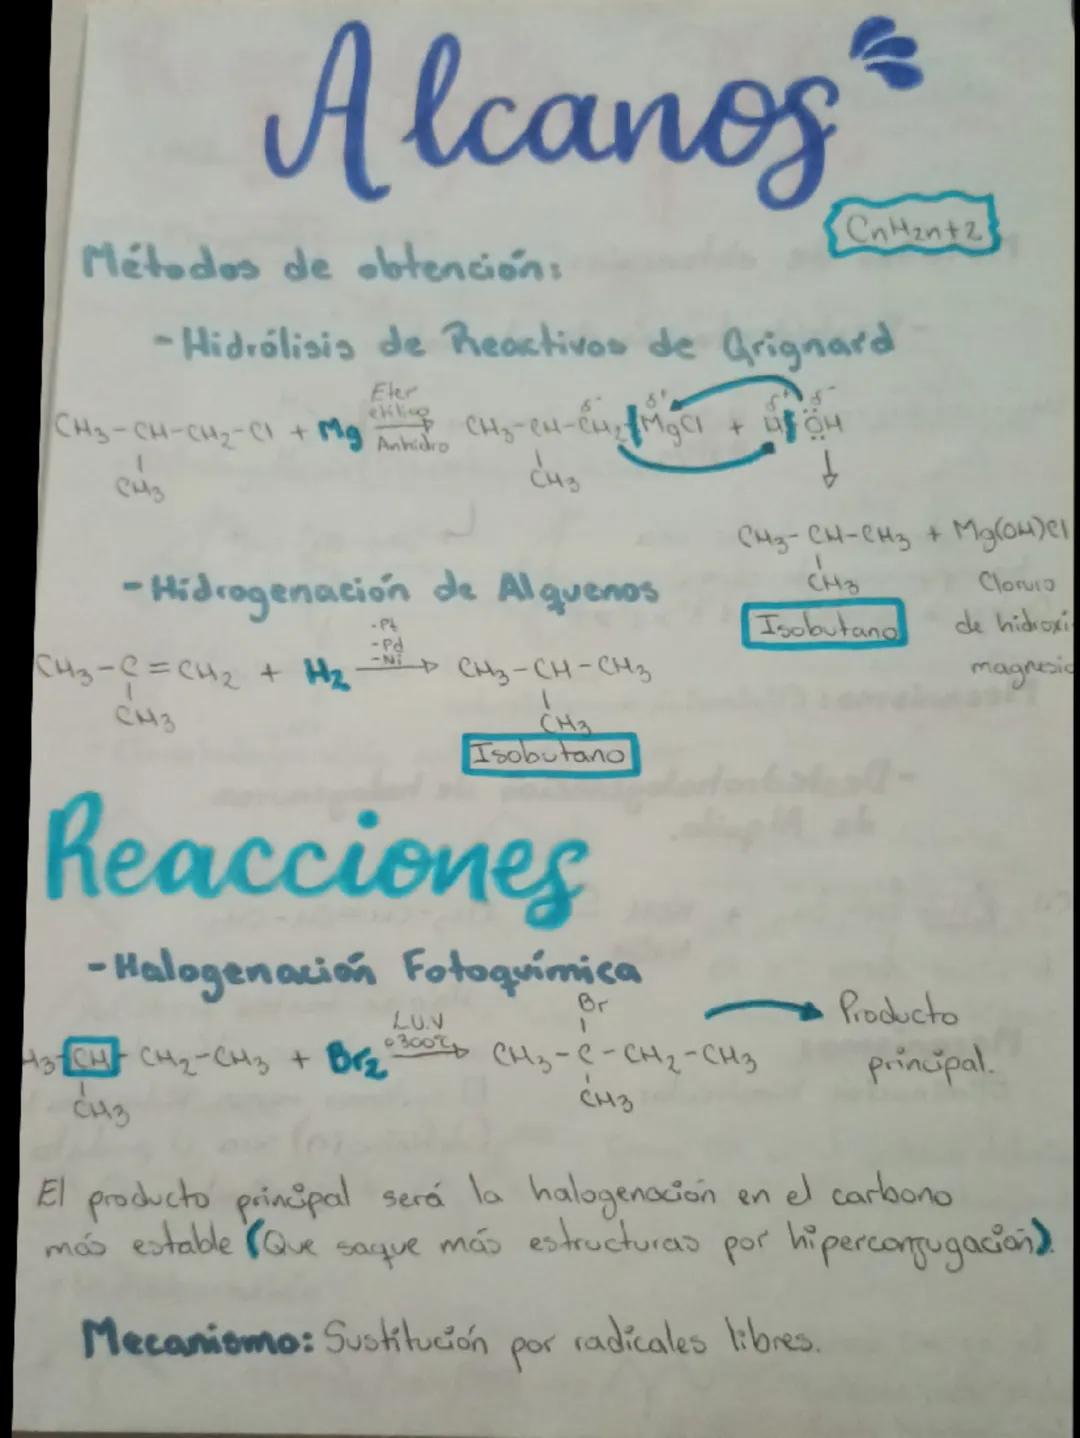 Alcanos
CnH2n+2
Métodos de obtención:
- Hidrólisis de Reactivos de Grignard
CH3-CH-CH2-Cl + Mg Eter etílico Anhidro CH3-CH-CH2 δ- MgCl δ+ + H δ+ ÖH δ-
CH3 CH3
CH3-CH-CH3 + Mg(OH)Cl
CH3 Cloruro
Isobutano de hidroxi
magnesio
- Hidrogenación de Alquenos
-Pt
-Pd
-Ni
CH3-C=CH2 + H2 → CH3-CH-CH3
CH3 CH3
Isobutano
Reacciones
- Halogenación Fotoquímica
L.U.V
o 300°C
Br
H3-CH-CH2-CH3 + Br2 → CH3-C-CH2-CH3 → Producto
principal.
CH3 CH3
El producto principal será la halogenación en el carbono
más estable (Que saque más estructuras por hiperconjugación).
Mecanismo: Sustitución por radicales libres.